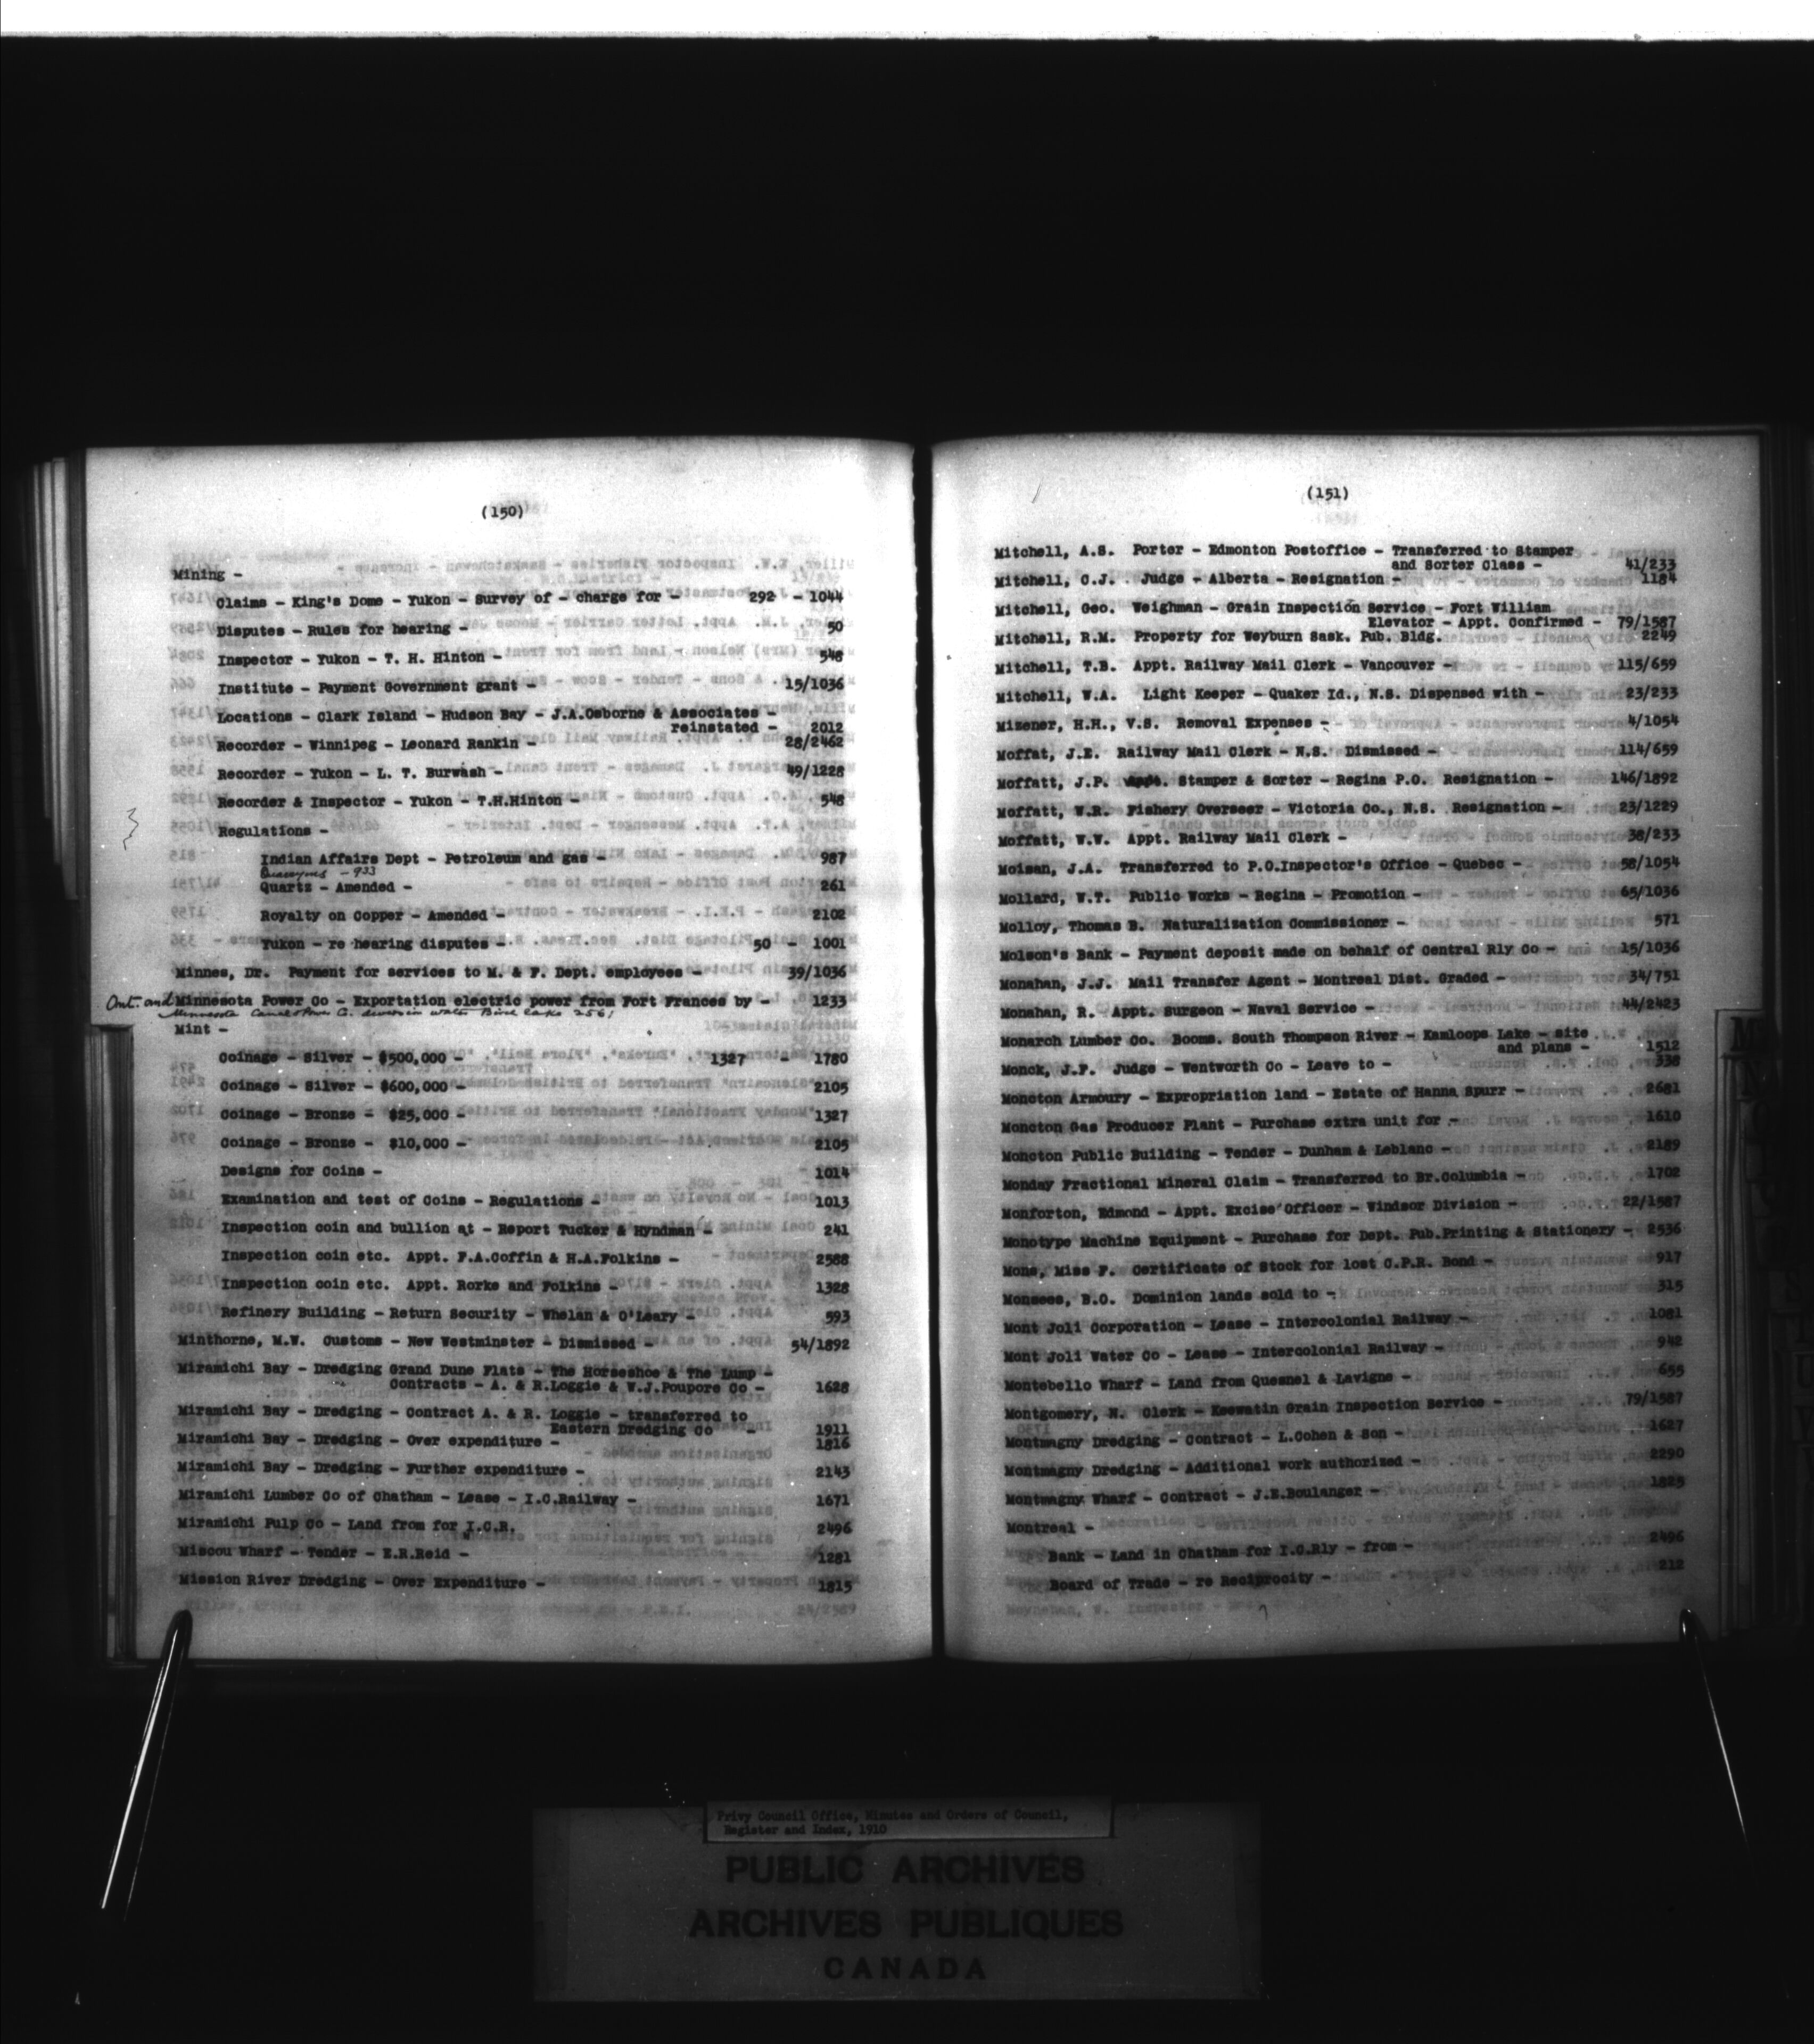 (150)
Mining -
Claims - King's Dome - Yukon - Survey of - charge for - 292 - 1044
Disputes - Rules for hearing - 50
Inspector - Yukon - T. H. Hinton - 548
Institute - Payment Government grant - 15/1036
Locations - Clark Island - Hudson Bay - J.A.Osborne & Associates -
reinstated - 2012
Recorder - Winnipeg - Leonard Rankin - 28/2462
Recorder - Yukon - L. T. Burwash - 49/1228
Recorder & Inspector - Yukon - T.H.Hinton - 548
Regulations -
Indian Affairs Dept - Petroleum and gas - 987
- 933
Quartz - Amended - 261
Royalty on Copper - Amended - 2102
Yukon - re hearing disputes - 50 - 1001
Minnes, Dr. Payment for services to M. & F. Dept. employees - 39/1036
Ont. and Minnesota Power Co - Exportation electric power from Fort Frances by - 1233
Minnesota Canal & Power Co. diversion water Birch lake 2561
Mint -
Coinage - Silver - $500,000 - 1327 - 1780
Coinage - Silver - $600,000 - 2105
Coinage - Bronze - $25,000 - 1327
Coinage - Bronze - $10,000 - 2105
Designs for Coins - 1014
Examination and test of Coins - Regulations - 1013
Inspection coin and bullion at - Report Tucker & Hyndman - 241
Inspection coin etc. Appt. F.A.Coffin & H.A.Folkins - 2588
Inspection coin etc. Appt. Rorke and Folkins - 1328
Refinery Building - Return Security - Whelan & O'Leary - 593
Minthorne, M.W. Customs - New Westminster - Dismissed - 54/1892
Miramichi Bay - Dredging Grand Dune Flats - The Horseshoe & The Lump -
Contracts - A. & R.Loggie & W.J.Poupore Co - 1628
Miramichi Bay - Dredging - Contract A. & R. Loggie - transferred to
Eastern Dredging Co - 1911
Miramichi Bay - Dredging - Over expenditure - 1816
Miramichi Bay - Dredging - Further expenditure - 2143
Miramichi Lumber Co of Chatham - Lease - I.C.Railway - 1671
Miramichi Pulp Co - Land from for I.C.R. 2496
Miscou Wharf - Tender - E.R.Reid - 1281
Mission River Dredging - Over Expenditure - 1815
(151)
Mitchell, A.S. Porter - Edmonton Postoffice - Transferred to Stamper
and Sorter Class - 41/233
Mitchell, C.J. Judge - Alberta - Resignation - 1184
Mitchell, Geo. Weighman - Grain Inspection Service - Fort William
Elevator - Appt. Confirmed - 79/1587
Mitchell, R.M. Property for Weyburn Sask. Pub. Bldg. 2249
Mitchell, T.B. Appt. Railway Mail Clerk - Vancouver - 115/659
Mitchell, W.A. Light Keeper - Quaker Id., N.S. Dispensed with - 23/233
Mizener, H.H., V.S. Removal Expenses - 4/1054
Moffat, J.E. Railway Mail Clerk - N.S. Dismissed - 114/659
Moffatt, J.P. Stamper & Sorter - Regina P.O. Resignation - 146/1892
Moffatt, W.R. Fishery Overseer - Victoria Co., N.S. Resignation - 23/1229
Moffatt, W.W. Appt. Railway Mail Clerk - 38/233
Moisan, J.A. Transferred to P.O.Inspector's Office - Quebec - 58/1054
Mollard, W.T. Public Works - Regina - Promotion - 65/1036
Molloy, Thomas B. Naturalization Commissioner - 571
Molson's Bank - Payment deposit made on behalf of Central Rly Co - 15/1036
Monahan, J.J. Mail Transfer Agent - Montreal Dist. Graded - 34/751
Monahan, R. Appt. Surgeon - Naval Service - 44/2423
Monarch Lumber Co. Booms. South Thompson River - Kamloops Lake - site
and plans - 1512
Monck, J.F. Judge - Wentworth Co - Leave to - 338
Moncton Armoury - Expropriation land - Estate of Hanna Spurr - 2681
Moncton Gas Producer Plant - Purchase extra unit for - 1610
Moncton Public Building - Tender - Dunham & Leblanc - 2189
Monday Fractional Mineral Claim - Transferred to Br.Columbia - 1702
Monforton, Edmond - Appt. Excise Officer - Windsor Division - 22/1587
Monotype Machine Equipment - Purchase for Dept. Pub.Printing & Stationery - 2536
Mons, Miss F. Certificate of Stock for lost C.P.R. Bond - 917
Monsees, B.O. Dominion lands sold to - 315
Mont Joli Corporation - Lease - Intercolonial Railway - 1081
Mont Joli Water Co - Lease - Intercolonial Railway - 942
Montebello Wharf - Land from Quesnel & Lavigne - 655
Montgomery, N. Clerk - Keewatin Grain Inspection Service - 79/1587
Montmagny Dredging - Contract - L.Cohen & Son - 1627
Montmagny Dredging - Additional work authorized - 2290
Montmagny Wharf - Contract - J.E.Boulanger - 1825
Montreal -
Bank - Land in Chatham for I.C.Rly - from - 2496
Board of Trade - re Reciprocity - 212
Privy Council Office, Minutes and Orders of Council,
Register and Index, 1910
PUBLIC ARCHIVES
ARCHIVES PUBLIQUES
CANADA